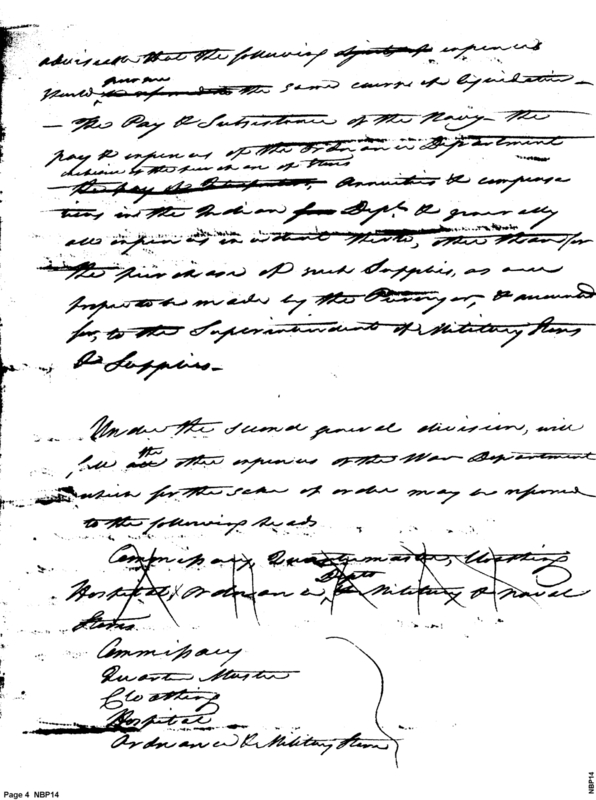 adviseable that the following expences
should pursue the same course of liquidation –
– The Pay & Subsistance of the Navy – the
pay & expences of the Ordnance Department
exclusive of the purchase of Stores
Annuities & compensa
tions in the Indian Dept. & generally
all expences incident thereto, other than for
the purchase of such Supplies, as are
proper to be made by the Purveyor, & accounted
for, to the Superintendent of Military Stores
& Supplies –
Under the second general division, will
fall the other expences of the War Department
which for the sake of order may be referred
to the following heads
Commissary, Quartermaster, Cloathing
Hospital, Ordnance, Depts & Military & naval
Stores.
Commissary
Quarter Master
Cloathing
Hospital
Ordnance & Military Stores
Page 4 NBP14
NBP14